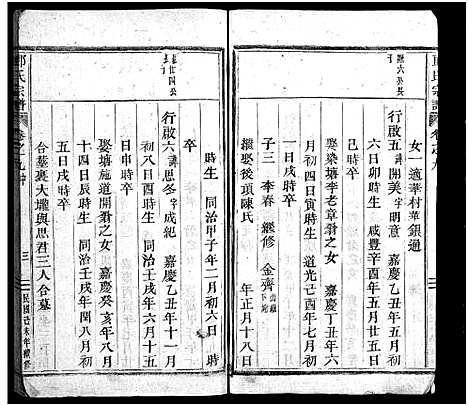 女一適華村華銀通
行啟五諱開美字明意 嘉慶乙丑年五月初
六日卯時生 咸豐辛酉年五月五日
巳時卒
娶染塘李老章翁之女 嘉慶丁丑年六
月初四日寅時生 道光己酉年七月初
一日戌時卒
子三 李春 繼修 金齊
繼娶後項陳氏 年正月十八
時生 同治甲子年二月初六日 時
卒
行啟六諱思冬字成紀 嘉慶乙丑年十一月
初八日酉時生 同治壬戌年六月十五
日申時卒
娶塘施道開翁之女 嘉慶癸亥年八月
十四日辰時生 同治壬戌年閏八月初
五日戌時卒
合墓裏大壠與思君三人合墓
氏宗譜
卷之九
三
民國己未年續修